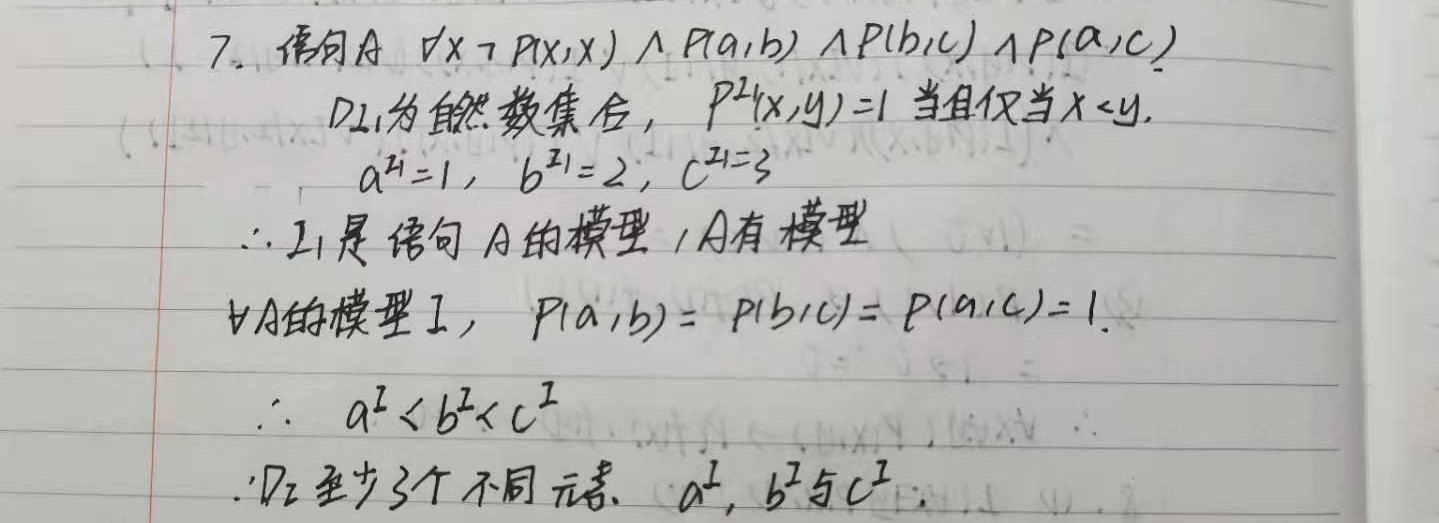 7. 语句A ∀x¬P(x,x) ∧ P(a,b) ∧P(b,c) ∧P(a,c)
D_{I₁}为自然数集合, P^{I₁}(x,y)=1 当且仅当 x<y.
a^{I₁}=1, b^{I₁}=2, c^{I₁}=3
∴ I₁是语句 A的模型, A有模型
∀A的模型I, P(a,b)= P(b,c)= P(a,c)=1.
∴ a^I<b^I<c^I
∴D_I至少3个不同元素. a^I, b^I与c^I.